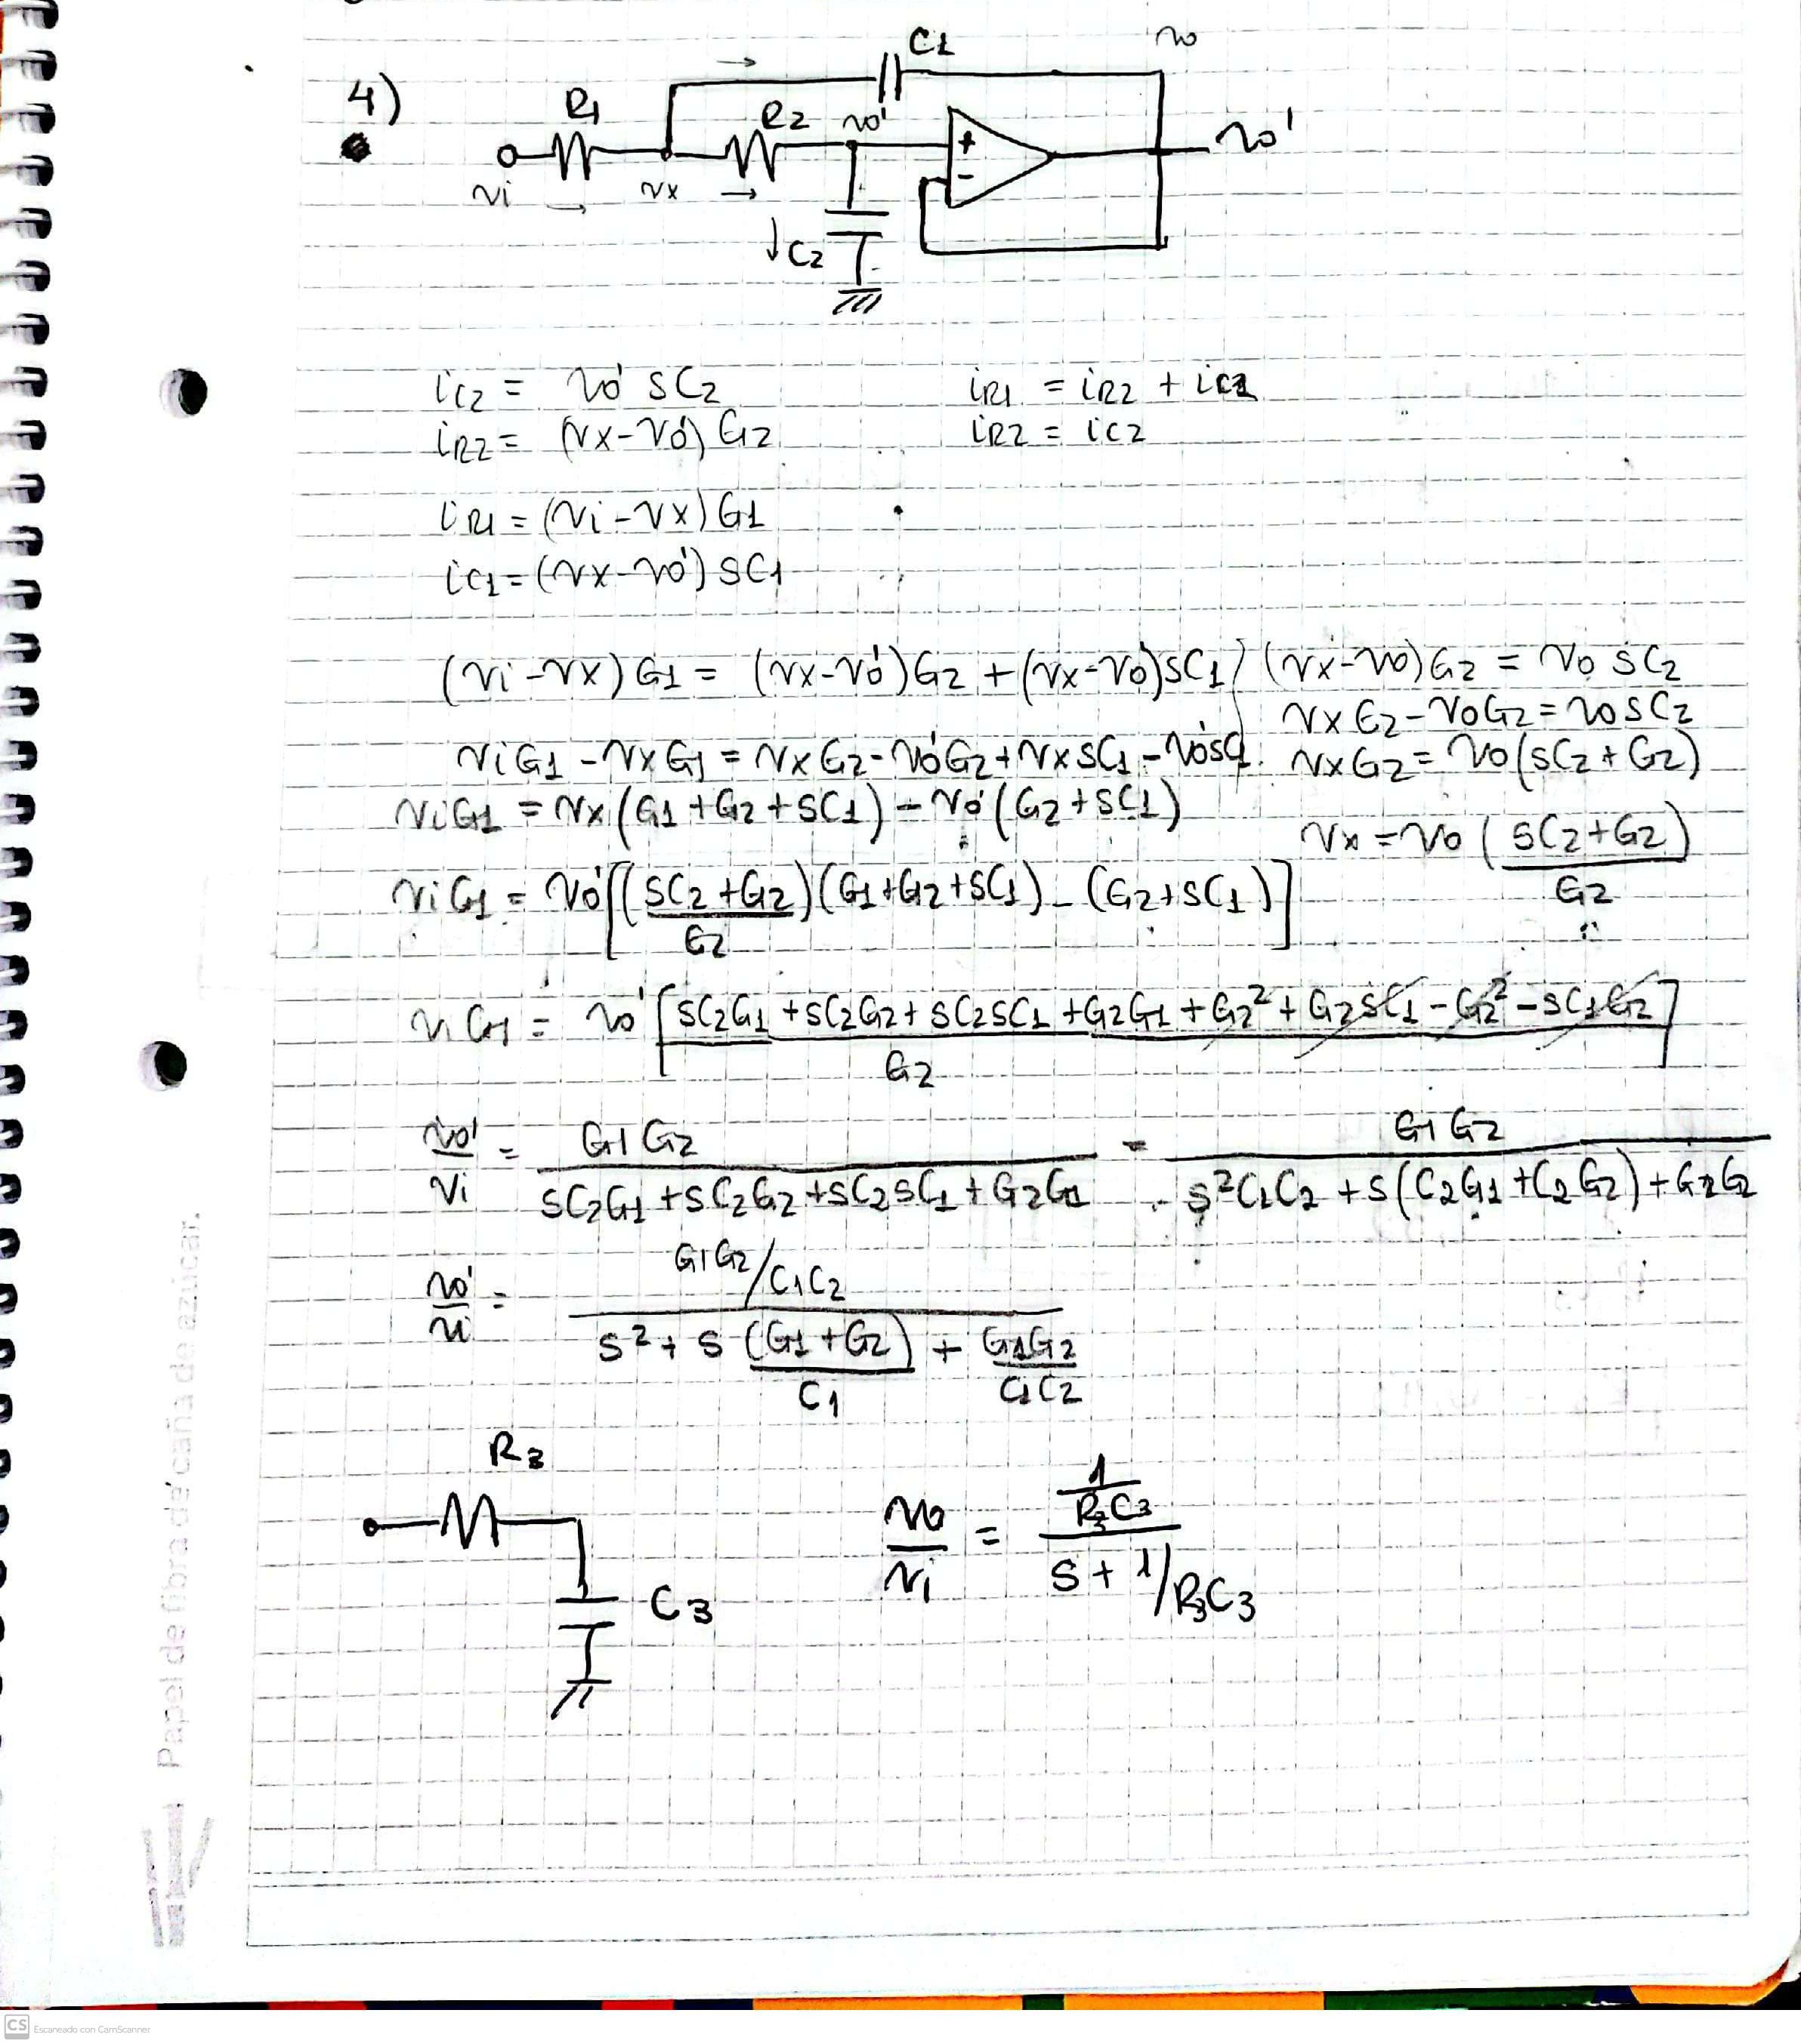 4)
R1
R2
C1
vo
vo'
vo'
vi
vx
C2
ic2 = vo' sC2
iR1 = iR2 + ic1
iR2 = (vx-vo') G2
iR2 = ic2
iR1 = (vi-vx) G1
ic1 = (vx-vo') sC1
(vi-vx) G1 = (vx-vo')G2 + (vx-vo')sC1
(vx-vo)G2 = vo sC2
vxG2-voG2 = vosC2
viG1 - vxG1 = vxG2-vo'G2+vxsC1-vo'sC1
vxG2 = vo(sC2+G2)
viG1 = vx(G1+G2+sC1) - vo'(G2+sC1)
vx = vo (sC2+G2)/G2
viG1 = vo'[(sC2+G2)/G2 (G1+G2+sC1) - (G2+sC1)]
viG1 = vo' [sC2G1 + sC2G2 + sC2sC1 + G2G1 + G2² + G2sC1 - G2² - sC1G2 / G2]
vo'/vi = G1G2 / sC2G1 + sC2G2 + sC2sC1 + G2G1 = G1G2 / s²C1C2 + s(C2G1 + C2G2) + G2G2
vo'/vi = G1G2/C1C2 / s² + s (G1+G2)/C1 + G1G2/C1C2
R3
C3
vo/vi = 1/R3C3 / s + 1/R3C3
Papel de fibra de caña de azúcar.
CS Escaneado con CamScanner